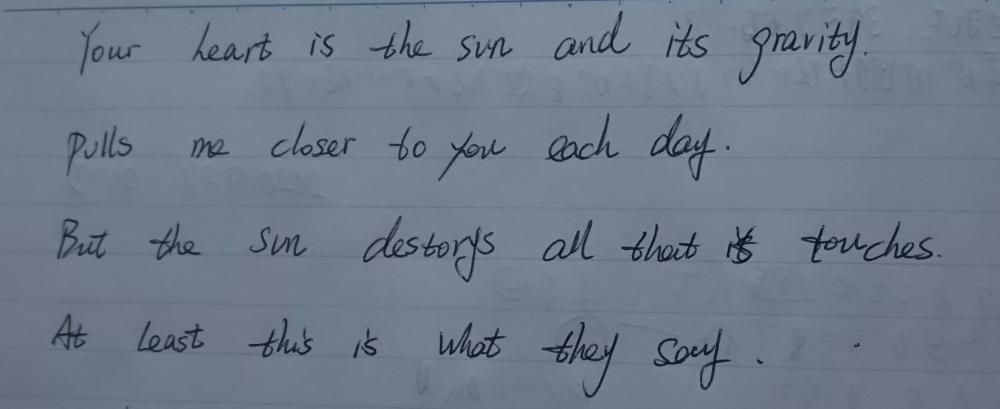 Your heart is the sun and its gravity.
pulls me closer to you each day.
But the sun destorys all that it touches.
At least this is what they say.